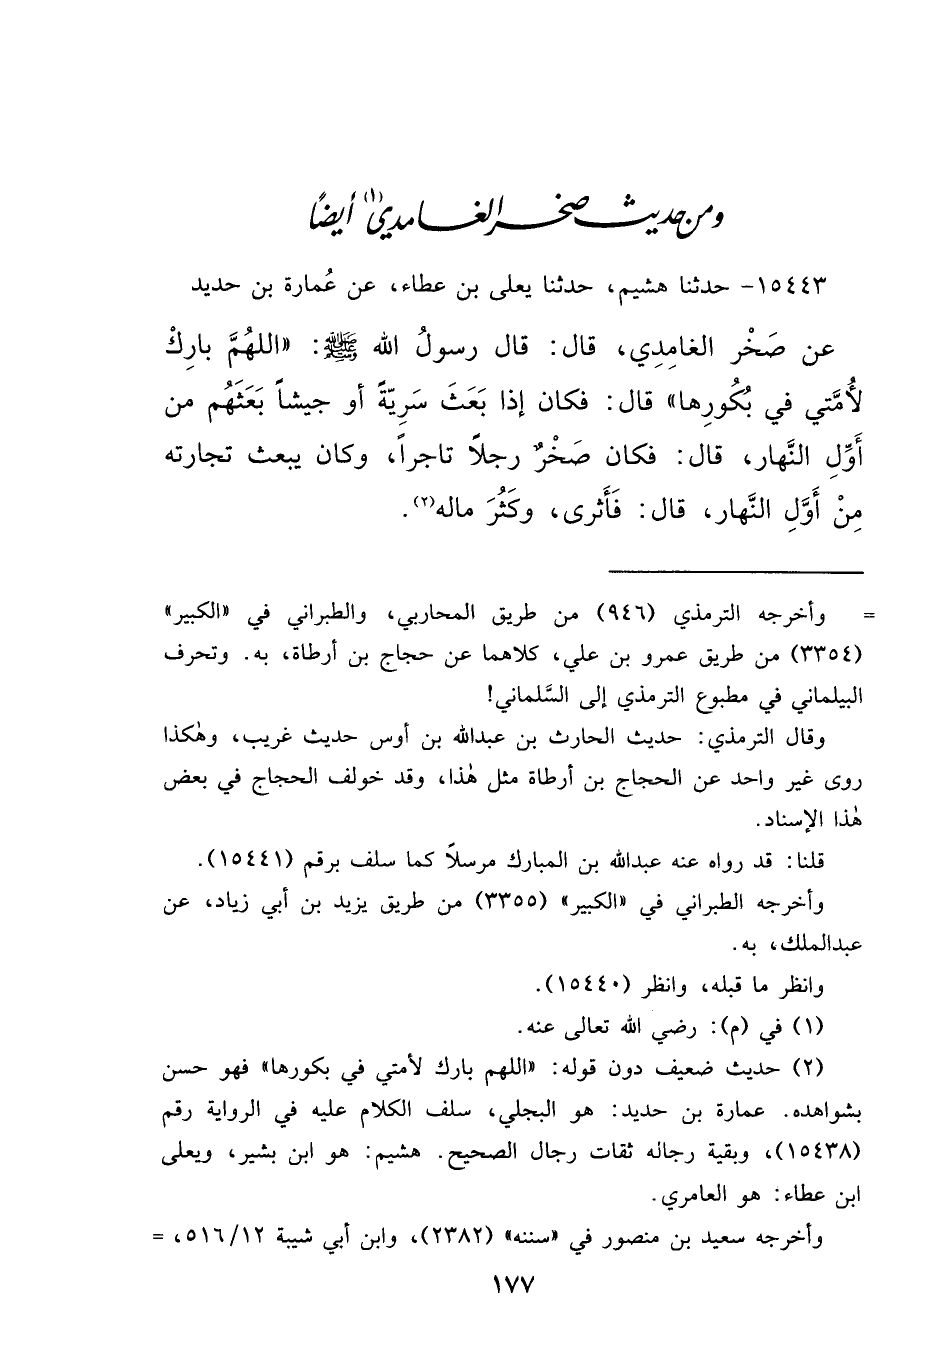 ومن حديث صخر الغامدي(١) أيضًا
١٥٤٤٣- حدثنا هشيم، حدثنا يعلى بن عطاء، عن عُمارة بن حديد
عن صَخْر الغامِدِي، قال: قال رسولُ الله ﷺ: «اللهُمَّ بارِكْ
لأُمَّتي في بُكُورِها» قال: فكان إذا بَعَثَ سَرِيّةً أو جيشاً بَعَثَهُم من
أَوِّلِ النَّهار، قال: فكان صَخْرٌ رجلاً تاجراً، وكان يبعث تجارته
مِنْ أَوَّلِ النَّهار، قال: فَأَثرى، وكَثُرَ ماله(٢).
= وأخرجه الترمذي (٩٤٦) من طريق المحاربي، والطبراني في «الكبير»
(٣٣٥٤) من طريق عمرو بن علي، كلاهما عن حجاج بن أرطاة، به. وتحرف
البيلماني في مطبوع الترمذي إلى السَّلماني!
وقال الترمذي: حديث الحارث بن عبدالله بن أوس حديث غريب، وهٰكذا
روى غير واحد عن الحجاج بن أرطاة مثل هٰذا، وقد خولف الحجاج في بعض
هٰذا الإسناد.
قلنا: قد رواه عنه عبدالله بن المبارك مرسلاً كما سلف برقم (١٥٤٤١).
وأخرجه الطبراني في «الكبير» (٣٣٥٥) من طريق يزيد بن أبي زياد، عن
عبدالملك، به.
وانظر ما قبله، وانظر (١٥٤٤٠).
(١) في (م): رضي الله تعالى عنه.
(٢) حديث ضعيف دون قوله: «اللهم بارك لأمتي في بكورها» فهو حسن
بشواهده. عمارة بن حديد: هو البجلي، سلف الكلام عليه في الرواية رقم
(١٥٤٣٨)، وبقية رجاله ثقات رجال الصحيح. هشيم: هو ابن بشير، ويعلى
ابن عطاء: هو العامري.
وأخرجه سعيد بن منصور في «سننه» (٢٣٨٢)، وابن أبي شيبة ٥١٦/١٢، =
١٧٧